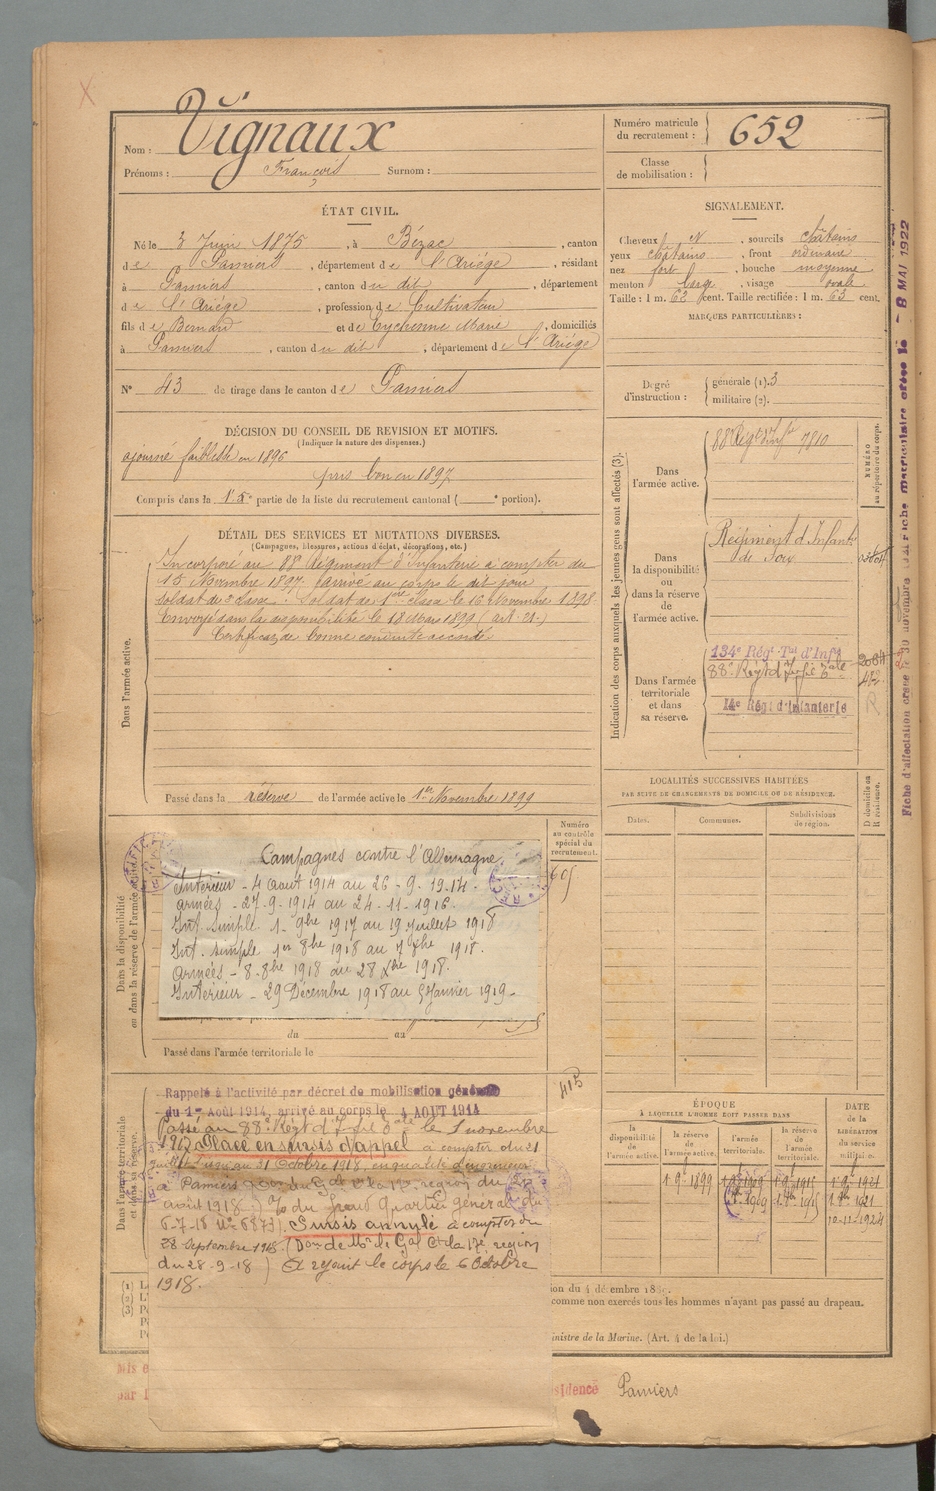 Nom : Vignaux
Prénoms : François Surnom :
Numéro matricule du recrutement : 652
Classe de mobilisation :
ÉTAT CIVIL.
Né le 3 Juin 1875, à Bézac, canton
de Pamiers, département de l'Ariége, résidant
à Pamiers, canton du dit, département
de l'Ariége, profession de Cultivateur
fils de Bernard et de Eychenne Marie, domiciliés
à Pamiers, canton du dit, département de l'Ariége
N° 43 de tirage dans le canton de Pamiers
SIGNALEMENT.
Cheveux N, sourcils châtains
yeux châtains, front ordinaire
nez fort, bouche moyenne
menton large, visage ovale
Taille : 1 m. 62 cent. Taille rectifiée : 1 m. 63 cent.
MARQUES PARTICULIÈRES :
Degré d'instruction : générale (1). 3
militaire (2).
DÉCISION DU CONSEIL DE REVISION ET MOTIFS.
(Indiquer la nature des dispenses.)
ajourné faiblesse en 1896
pris bon en 1897
Compris dans la 1re partie de la liste du recrutement cantonal ( e portion).
DÉTAIL DES SERVICES ET MUTATIONS DIVERSES.
(Campagnes, blessures, actions d'éclat, décorations, etc.)
Dans l'armée active.
Incorporé au 88 Régiment d'Infanterie à compter du
15 Novembre 1897. arrivé au corps le dit jour
Soldat de 2e classe. Soldat de 1ère classe le 16 Novembre 1898
Envoyé dans la disponibilité le 18 Mai 1899 (art. 21.)
Certificat de bonne conduite accordé
Passé dans la réserve de l'armée active le 1er Novembre 1899
Indication des corps auxquels les jeunes gens sont affectés (3).
NUMÉRO au répertoire du corps.
Dans l'armée active.
88 Régt d'Infie 7810
Dans la disponibilité ou dans la réserve de l'armée active.
Régiment d'Infanterie
de Foix
Dans l'armée territoriale et dans sa réserve.
134e Régt Tal d'Infie
2064
88e Régt d'Infie Tale
14e Régt d'Infanterie
Fiche d'affectation créée le 30 novembre
Fiche matriculaire créée le - 8 MAI 1922
LOCALITÉS SUCCESSIVES HABITÉES
PAR SUITE DE CHANGEMENTS DE DOMICILE OU DE RÉSIDENCE.
Dates. Communes. Subdivisions de région. D domicile ou R résidence.
Dans la disponibilité ou dans la réserve de l'armée active
Numéro au contrôle spécial du recrutement.
605
Campagnes contre l'Allemagne.
Intérieur - 4 août 1914 au 26 - 9. 1914.
armées - 27-9-1914 au 24-11-1916.
Int. simple 1- 9bre 1917 au 19 juillet 1918
Int. simple 1er 8bre 1918 au 7 8bre 1918.
armées - 8-8bre 1918 au 28 Xbre 1918.
Intérieur - 29 Décembre 1918 au 5 Janvier 1919 -
du au
Passé dans l'armée territoriale le
Dans l'armée territoriale et dans sa réserve.
415
Rappelé à l'activité par décret de mobilisation générale
du 1er Août 1914, arrivé au corps le 4 AOUT 1914
Passé au 88e Régt d'Infie Tale le 1 novembre
1917 Placé en sursis d'appel à compter du 21
juillet jusqu'au 31 Octobre 1918, en qualité de
à Pamiers région du
août 1918) du Grand Quartier général du
6-7-18 N° 6873). Sursis annulé à compter du
28 Septembre 1918. (Don de Mr le Gal Ct la 17e région
du 28-9-18) A rejoint le corps le 6 Octobre
1918.
ÉPOQUE
À LAQUELLE L'HOMME DOIT PASSER DANS
la disponibilité de l'armée active. la réserve de l'armée active. l'armée territoriale. la réserve de l'armée territoriale.
DATE de la LIBÉRATION du service militaire.
1 9e 1899
1 9e 1921
10-11-1924
ion du 4 décembre 18
comme non exercés tous les hommes n'ayant pas passé au drapeau.
inistre de la Marine. (Art. 4 de la loi.)
Mis e
par l
sidence Pamiers